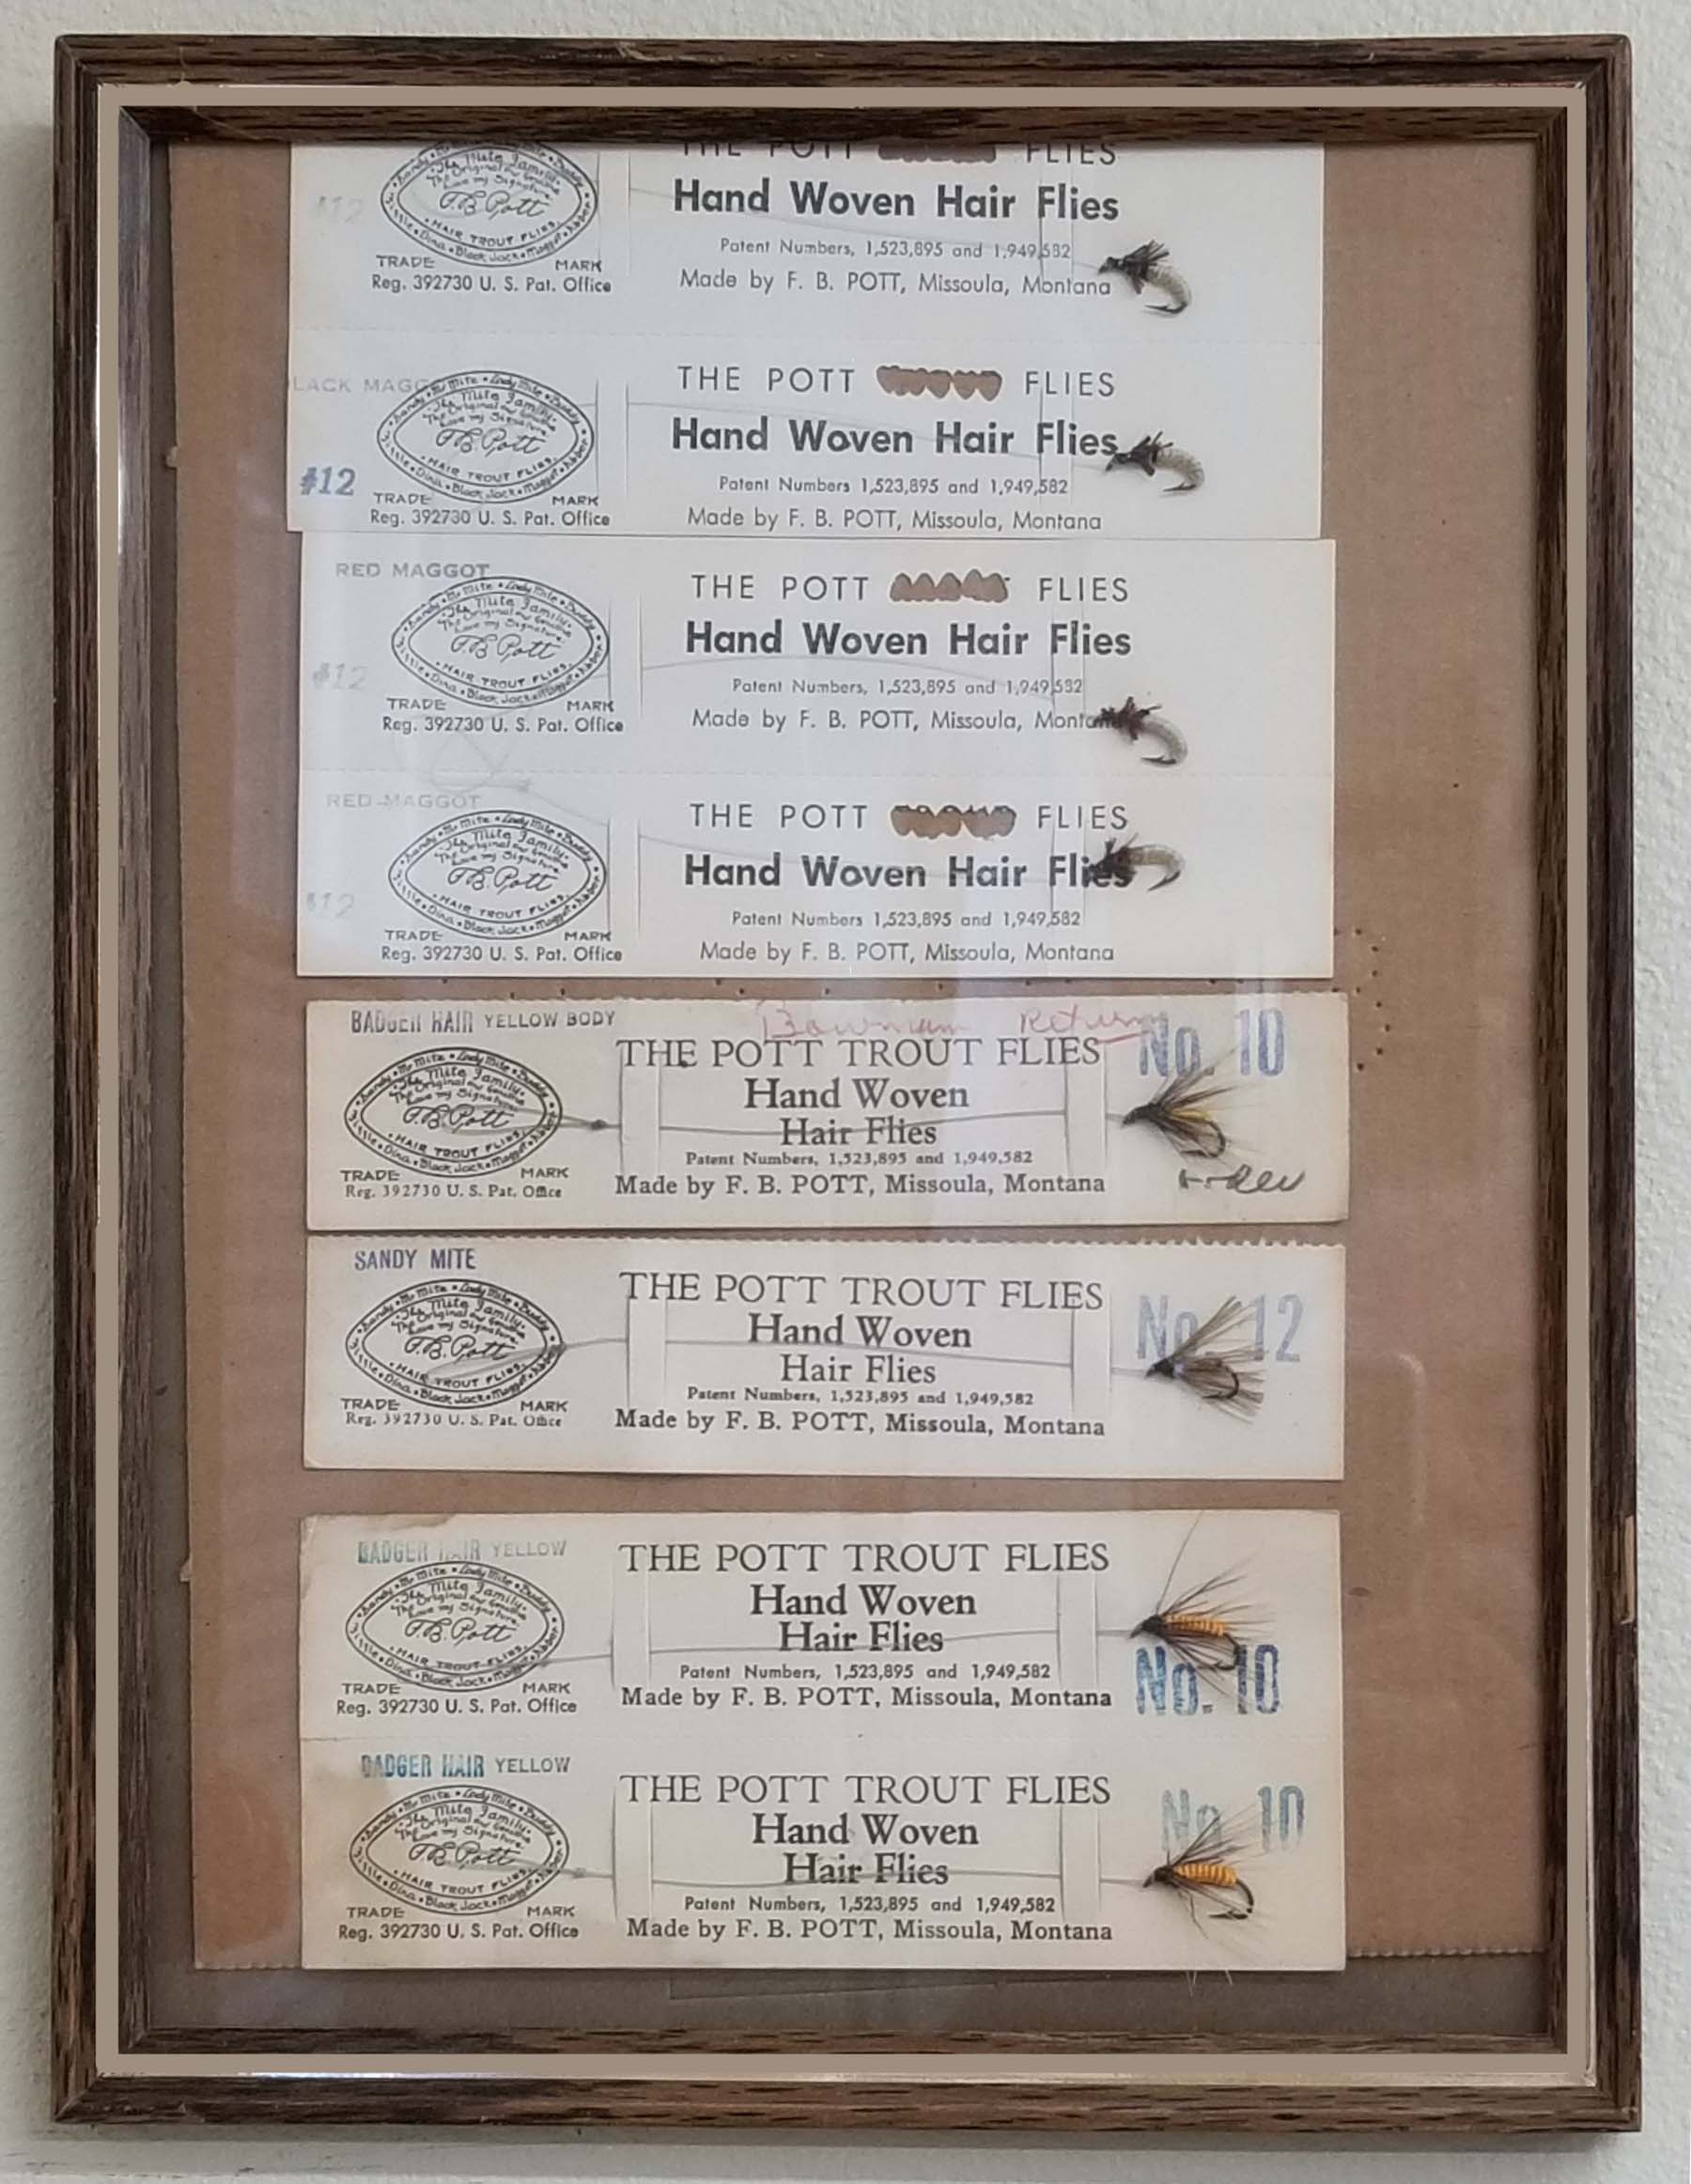 THE POTT FLIES
Hand Woven Hair Flies
Patent Numbers, 1,523,895 and 1,949,582
Made by F. B. POTT, Missoula, Montana
#12
The Mite Family
The Original
have my Signature
F.B. Pott
HAIR TROUT FLIES
Dina • Black Jack • Maggot
TRADE MARK
Reg. 392730 U. S. Pat. Office
LACK MAGG
#12
Sandy • Mr Mite • Lady Mite • Buddy
The Mite Family
The Original
have my Signature
F.B. Pott
HAIR TROUT FLIES
Dina • Black Jack • Maggot
TRADE MARK
Reg. 392730 U. S. Pat. Office
THE POTT FLIES
Hand Woven Hair Flies
Patent Numbers 1,523,895 and 1,949,582
Made by F. B. POTT, Missoula, Montana
RED MAGGOT
#12
Sandy • Mr Mite • Lady Mite • Buddy
The Mite Family
The Original
have my Signature
F.B. Pott
HAIR TROUT FLIES
Dina • Black Jack • Maggot
TRADE MARK
Reg. 392730 U. S. Pat. Office
THE POTT FLIES
Hand Woven Hair Flies
Patent Numbers, 1,523,895 and 1,949,582
Made by F. B. POTT, Missoula, Montana
RED MAGGOT
#12
Sandy • Mr Mite • Lady Mite • Buddy
The Mite Family
The Original
have my Signature
F.B. Pott
HAIR TROUT FLIES
Dina • Black Jack • Maggot
TRADE MARK
Reg. 392730 U. S. Pat. Office
THE POTT FLIES
Hand Woven Hair Flies
Patent Numbers 1,523,895 and 1,949,582
Made by F. B. POTT, Missoula, Montana
BADGER HAIR YELLOW BODY
Sandy • Mr Mite • Lady Mite • Buddy
The Mite Family
The Original
have my Signature
F.B. Pott
HAIR TROUT FLIES
Dina • Black Jack • Maggot
TRADE MARK
Reg. 392730 U. S. Pat. Office
Bowman Return
No. 10
THE POTT TROUT FLIES
Hand Woven
Hair Flies
Patent Numbers, 1,523,895 and 1,949,582
Made by F. B. POTT, Missoula, Montana
SANDY MITE
Sandy • Mr Mite • Lady Mite • Buddy
The Mite Family
The Original
have my Signature
F.B. Pott
HAIR TROUT FLIES
Dina • Black Jack • Maggot
TRADE MARK
Reg. 392730 U. S. Pat. Office
THE POTT TROUT FLIES
Hand Woven
Hair Flies
Patent Numbers, 1,523,895 and 1,949,582
Made by F. B. POTT, Missoula, Montana
No. 12
BADGER HAIR YELLOW
Sandy • Mr Mite • Lady Mite • Buddy
The Mite Family
The Original
have my Signature
F.B. Pott
HAIR TROUT FLIES
Dina • Black Jack • Maggot
TRADE MARK
Reg. 392730 U. S. Pat. Office
THE POTT TROUT FLIES
Hand Woven
Hair Flies
Patent Numbers, 1,523,895 and 1,949,582
Made by F. B. POTT, Missoula, Montana
No. 10
BADGER HAIR YELLOW
Sandy • Mr Mite • Lady Mite • Buddy
The Mite Family
The Original
have my Signature
F.B. Pott
HAIR TROUT FLIES
Dina • Black Jack • Maggot
TRADE MARK
Reg. 392730 U. S. Pat. Office
THE POTT TROUT FLIES
Hand Woven
Hair Flies
Patent Numbers, 1,523,895 and 1,949,582
Made by F. B. POTT, Missoula, Montana
No. 10